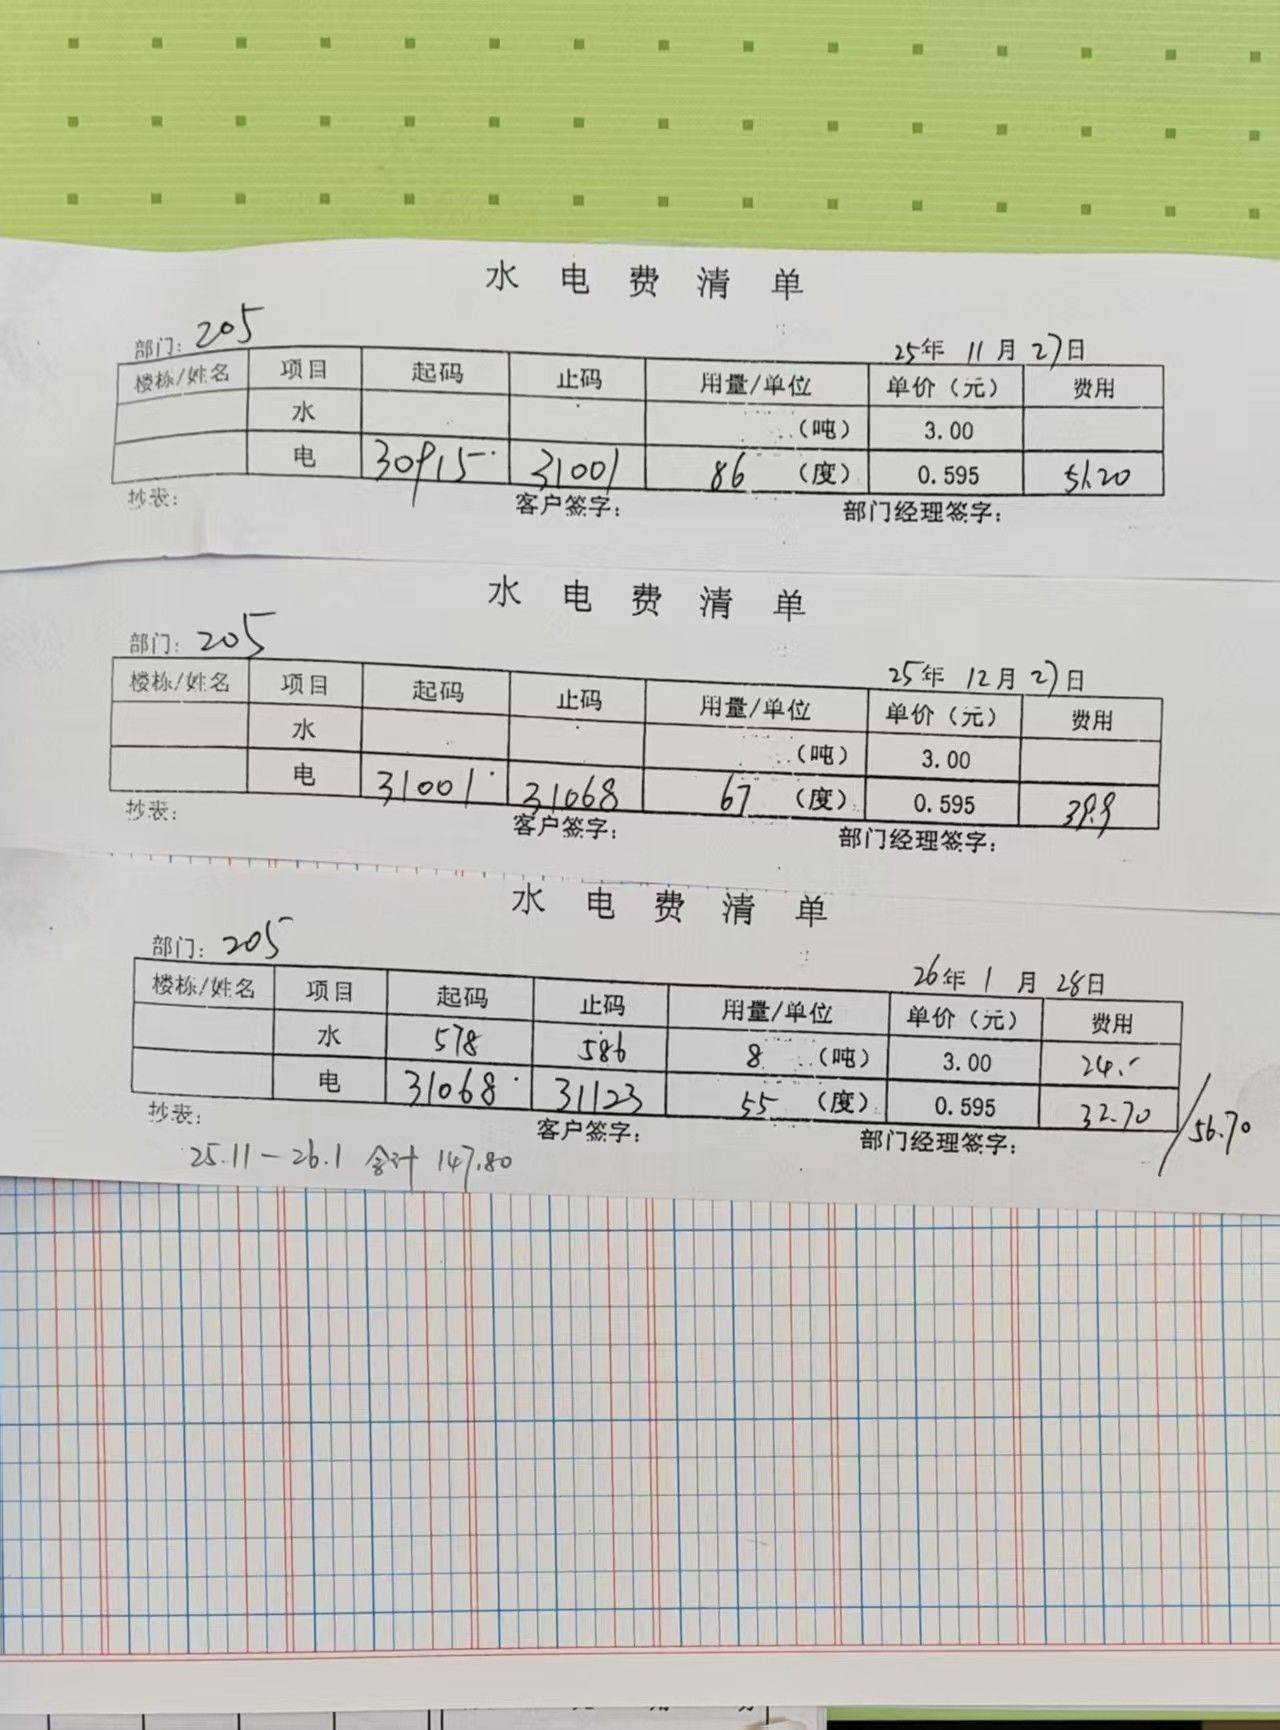 水 电 费 清 单
部门: 205
25年 11月 27日
楼栋/姓名 项目 起码 止码 用量/单位 单价（元） 费用
水 （吨） 3.00
电 30915 31001 86 （度） 0.595 51.20
抄表: 客户签字: 部门经理签字:
水 电 费 清 单
部门: 205
25年 12月 27日
楼栋/姓名 项目 起码 止码 用量/单位 单价（元） 费用
水 （吨） 3.00
电 31001 31068 67 （度） 0.595 39.9
抄表: 客户签字: 部门经理签字:
水 电 费 清 单
部门: 205
26年 1月 28日
楼栋/姓名 项目 起码 止码 用量/单位 单价（元） 费用
水 578 586 8 （吨） 3.00 24.-
电 31068 31123 55 （度） 0.595 32.70 /56.70
抄表: 客户签字: 部门经理签字:
25.11-26.1 合计 147.80